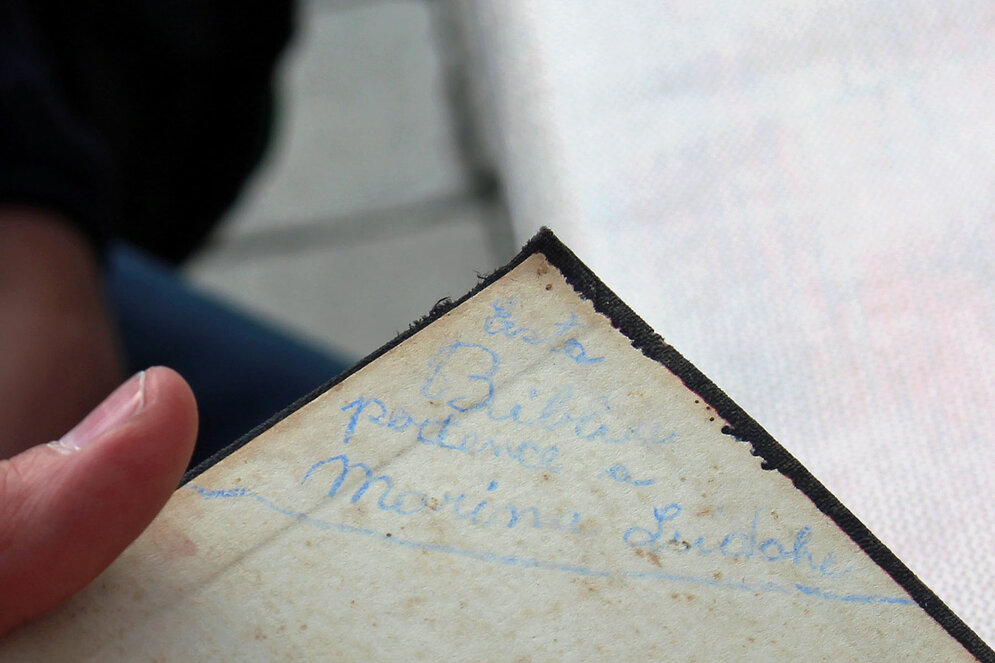 Esta
Biblia
pertence a
Marina Ludahe